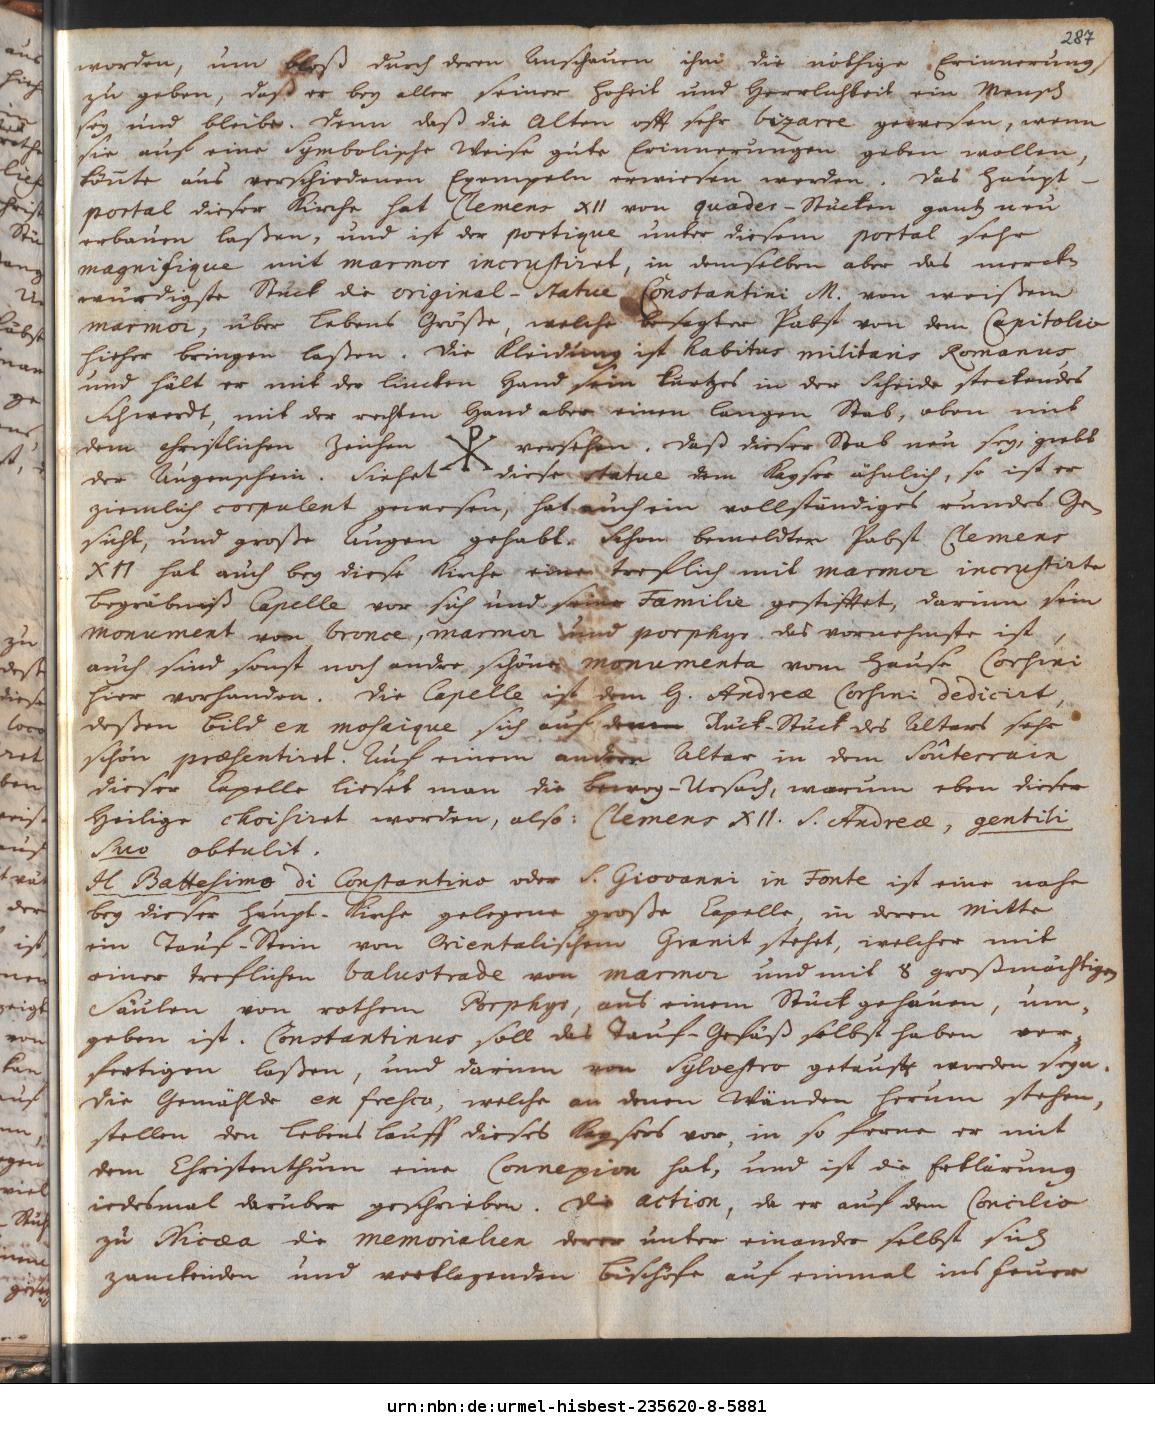 287
worden, um bloß durch deren Anschauen ihm die nöthige Erinnerung
zu geben, daß er bey aller seiner Hoheit und Herrlichkeit ein Mensch
sey und bleibe. Denn daß die Alten offt sehr bizarre gewesen, wenn
sie auf eine Symbolische Weise gute Erinnerungen geben wollen,
könte aus verschiedenen Exempeln erwiesen werden. Das Haupt-
portal dieser Kirche hat Clemens XII von quader-Stücken gantz neu
erbauen laßen, und ist der portique unter diesem portal sehr
magnifique mit marmor incrustiret, in demselben aber das merck-
würdigste Stück die original-statue Constantini M. von weißem
marmor, über Lebens Größe, welche besagter Pabst von dem Capitolio
hieher bringen laßen. Die Kleidung ist habitus militaris Romanus
und hält er mit der lincken Hand sein kurtzes in der Scheide steckendes
Schwerdt, mit der rechten Hand aber einen langen Stab, oben mit
dem christlichen Zeichen ☧ versehen. Daß dieser Stab neu sey, giebt
der Augenschein. Siehet diese statue dem Kayser ähnlich, so ist er
ziemlich corpulent gewesen, hat auch ein vollständiges rundes Ge-
sicht, und große Augen gehabt. Schon bemeldter Pabst Clemens
XII hat auch bey diese Kirche eine treflich mit marmor incrustirte
Begräbniß Capelle vor sich und seine Familie gestifftet, darinn sein
monument von bronce, marmor und porphyr das vornehmste ist,
auch sind sonst noch andre schöne monumenta vom Hause Corsini
hier vorhanden. Die Capelle ist dem H. Andreæ Corsini dedicirt,
deßen Bild en mosaique sich auf dem Ruck-Stück des Altars sehr
schön præsentiret. Auf einem andern Altar in dem Soûterrain
dieser Capelle lieset man die Beweg-Ursach, warum eben dieser
Heilige choisiret worden, also: Clemens XII. S. Andreæ, gentili
suo obtulit.
Il Battesimo di Constantino oder S. Giovanni in Fonte ist eine nahe
bey dieser Haupt-Kirche gelegene große Capelle, in deren Mitte
ein Tauf-Stein von Orientalischem Granit stehet, welcher mit
einer treflichen balustrade von marmor und mit 8 großmächtigen
Säulen von rothem Porphyr, aus einem Stück gehauen, um-
geben ist. Constantinus soll das Tauf-Gefäß selbst haben ver-
fertigen laßen, und darinn von Sylvestro getaufft worden seyn.
Die Gemählde en fresco, welche an denen Wänden herum stehen,
stellen den Lebenslauff dieses Kaysers vor, in so ferne er mit
dem Christenthum eine Connexion hat, und ist die Erklärung
iedesmal darüber geschrieben. Die action, da er auf dem Concilio
zu Nicæa die Memorialien derer unter einander selbst sich
zanckenden und verklagenden Bischöfe auf einmal ins Feuer
urn:nbn:de:urmel-hisbest-235620-8-5881